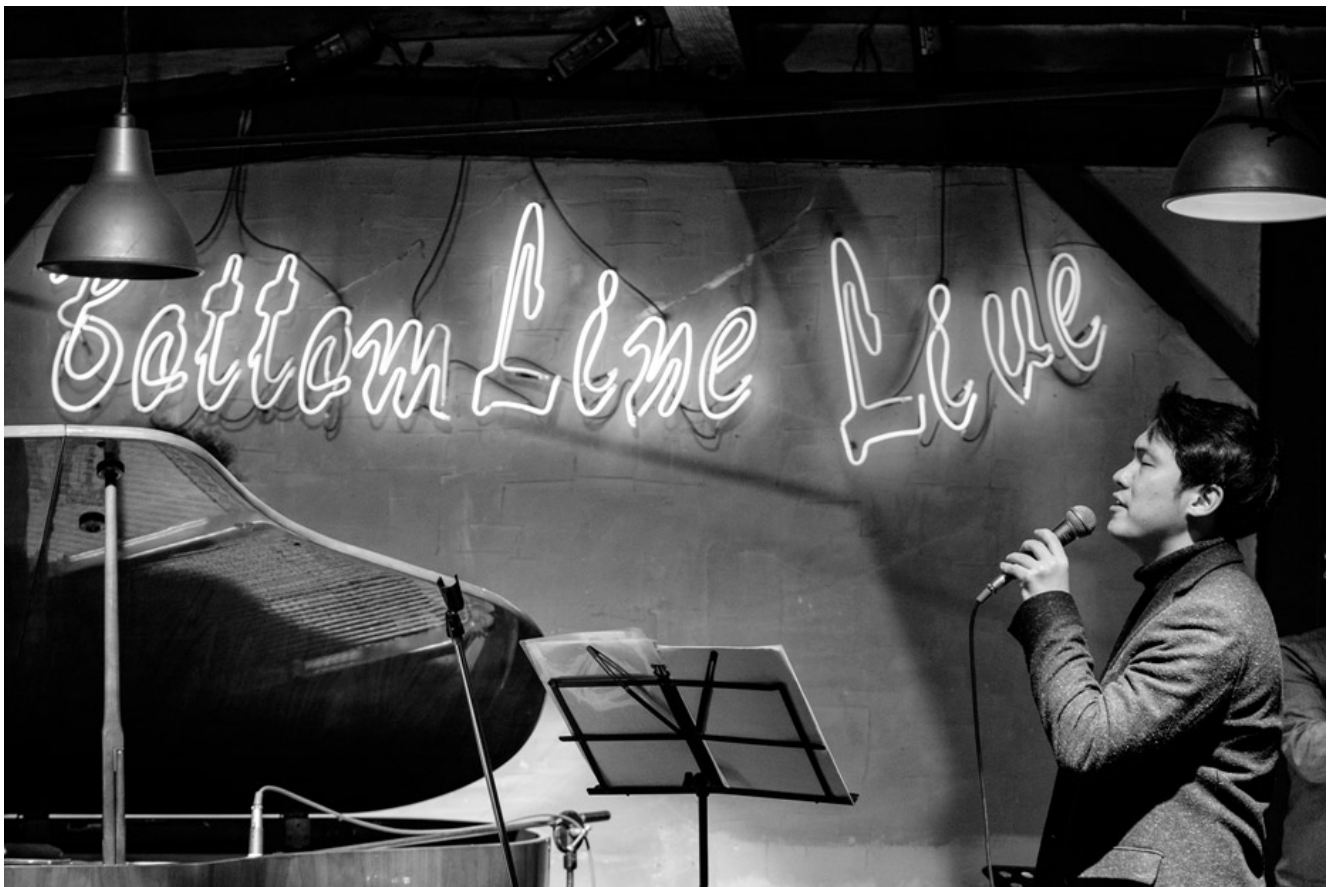 Bottom Line Live